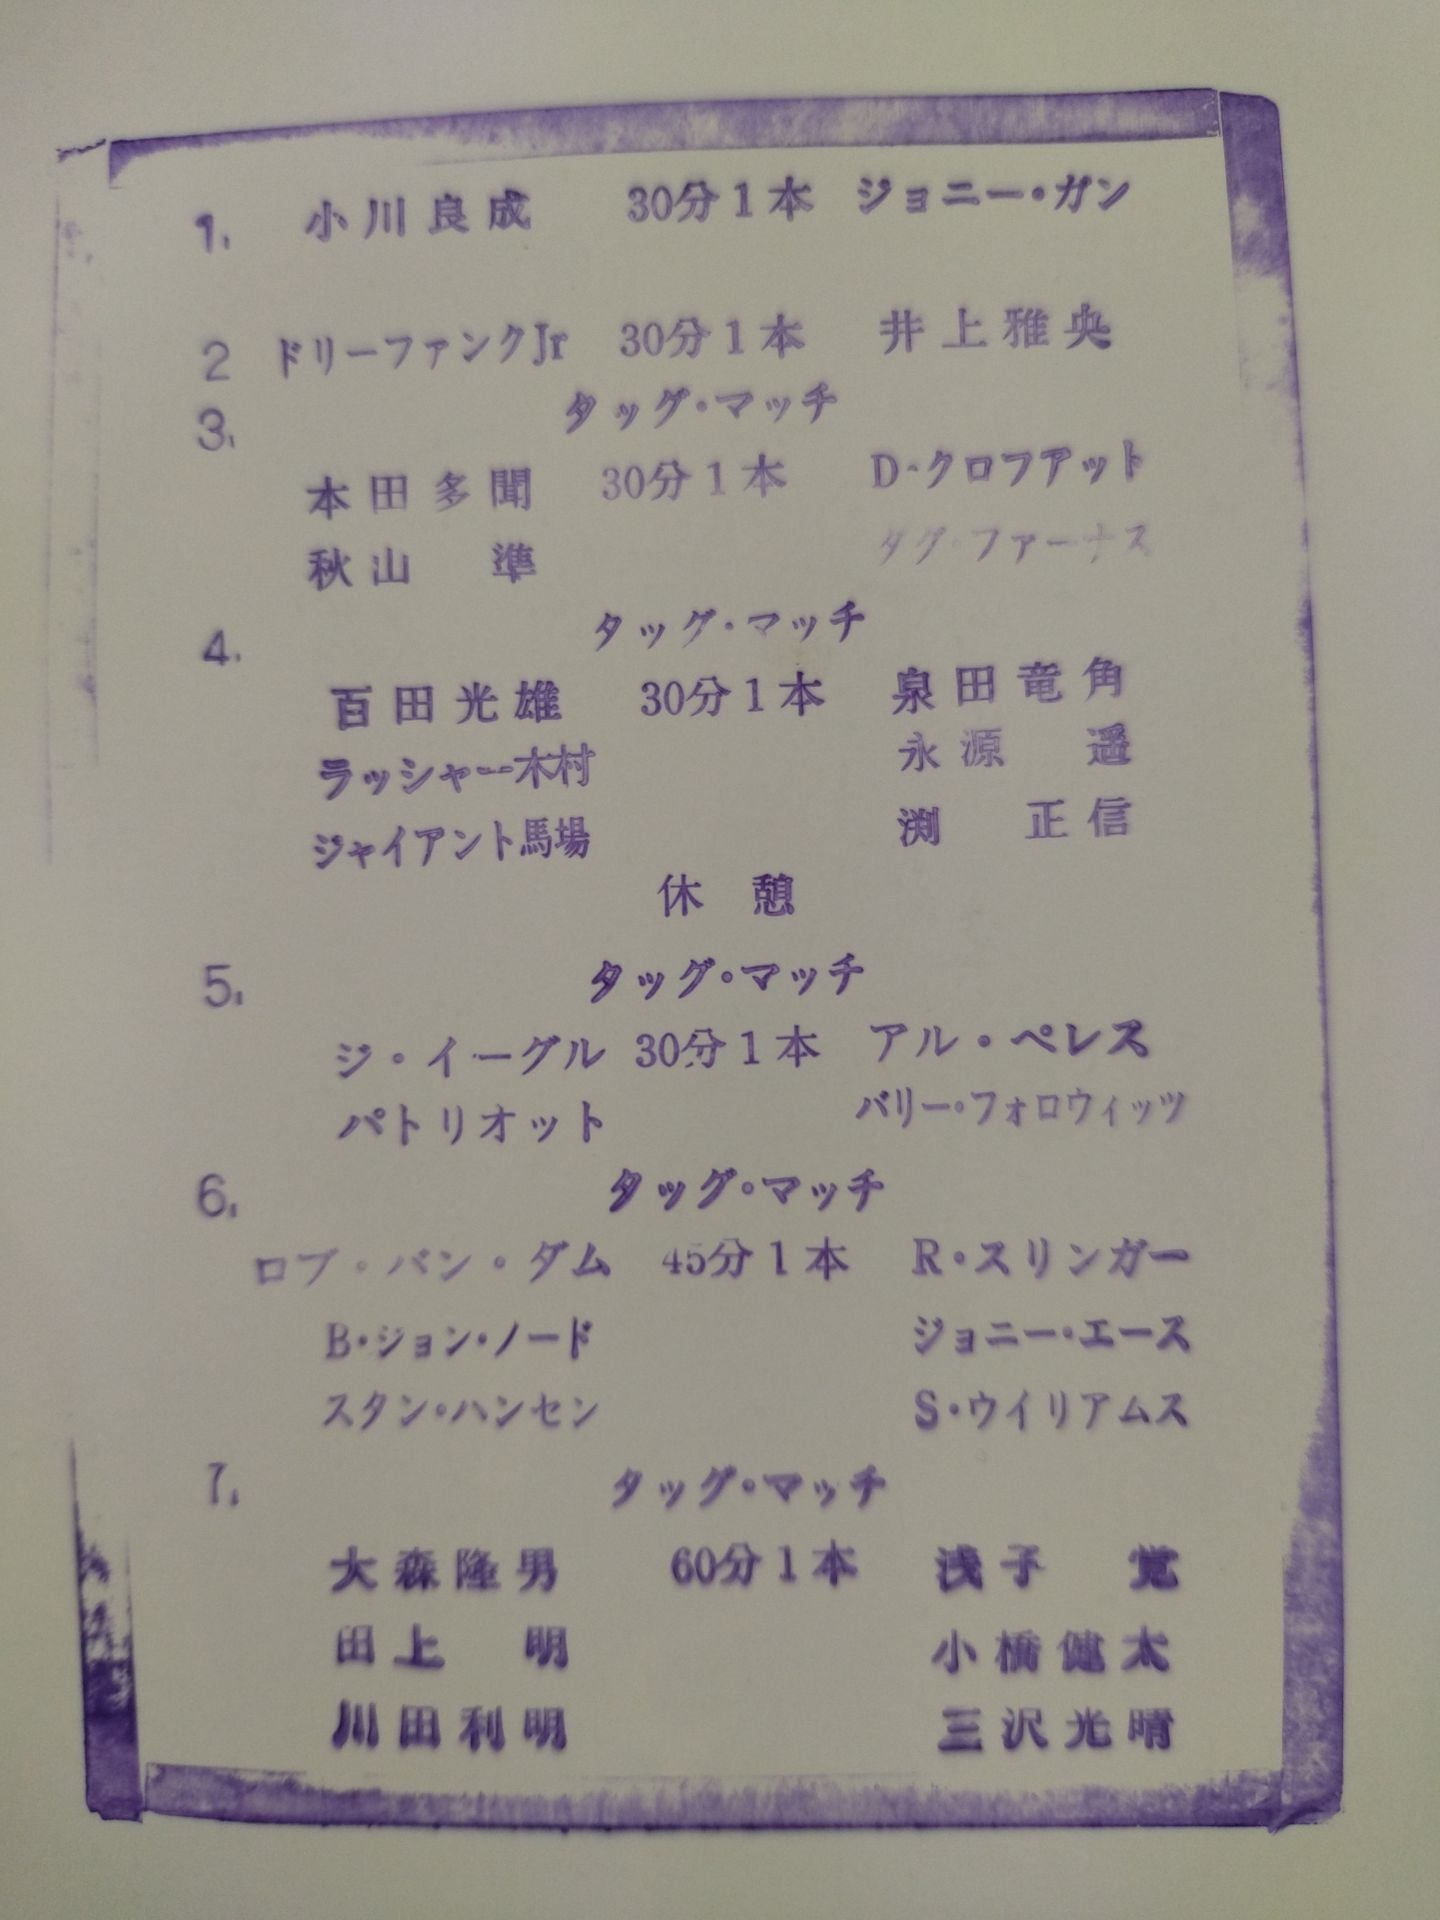 1. 小川良成 30分1本 ジョニー・ガン
2 ドリーファンクJr 30分1本 井上雅央
3. タッグ・マッチ
本田多聞 30分1本 D・クロフアット
秋山 準 ダグ・ファーナス
4. タッグ・マッチ
百田光雄 30分1本 泉田竜角
ラッシャー木村 永源 遥
ジャイアント馬場 渕 正信
休憩
5. タッグ・マッチ
ジ・イーグル 30分1本 アル・ペレス
パトリオット バリー・フォロウィッツ
6. タッグ・マッチ
ロブ・バン・ダム 45分1本 R・スリンガー
B・ジョン・ノード ジョニー・エース
スタン・ハンセン S・ウイリアムス
7. タッグ・マッチ
大森隆男 60分1本 浅子 覚
田上 明 小橋健太
川田利明 三沢光晴